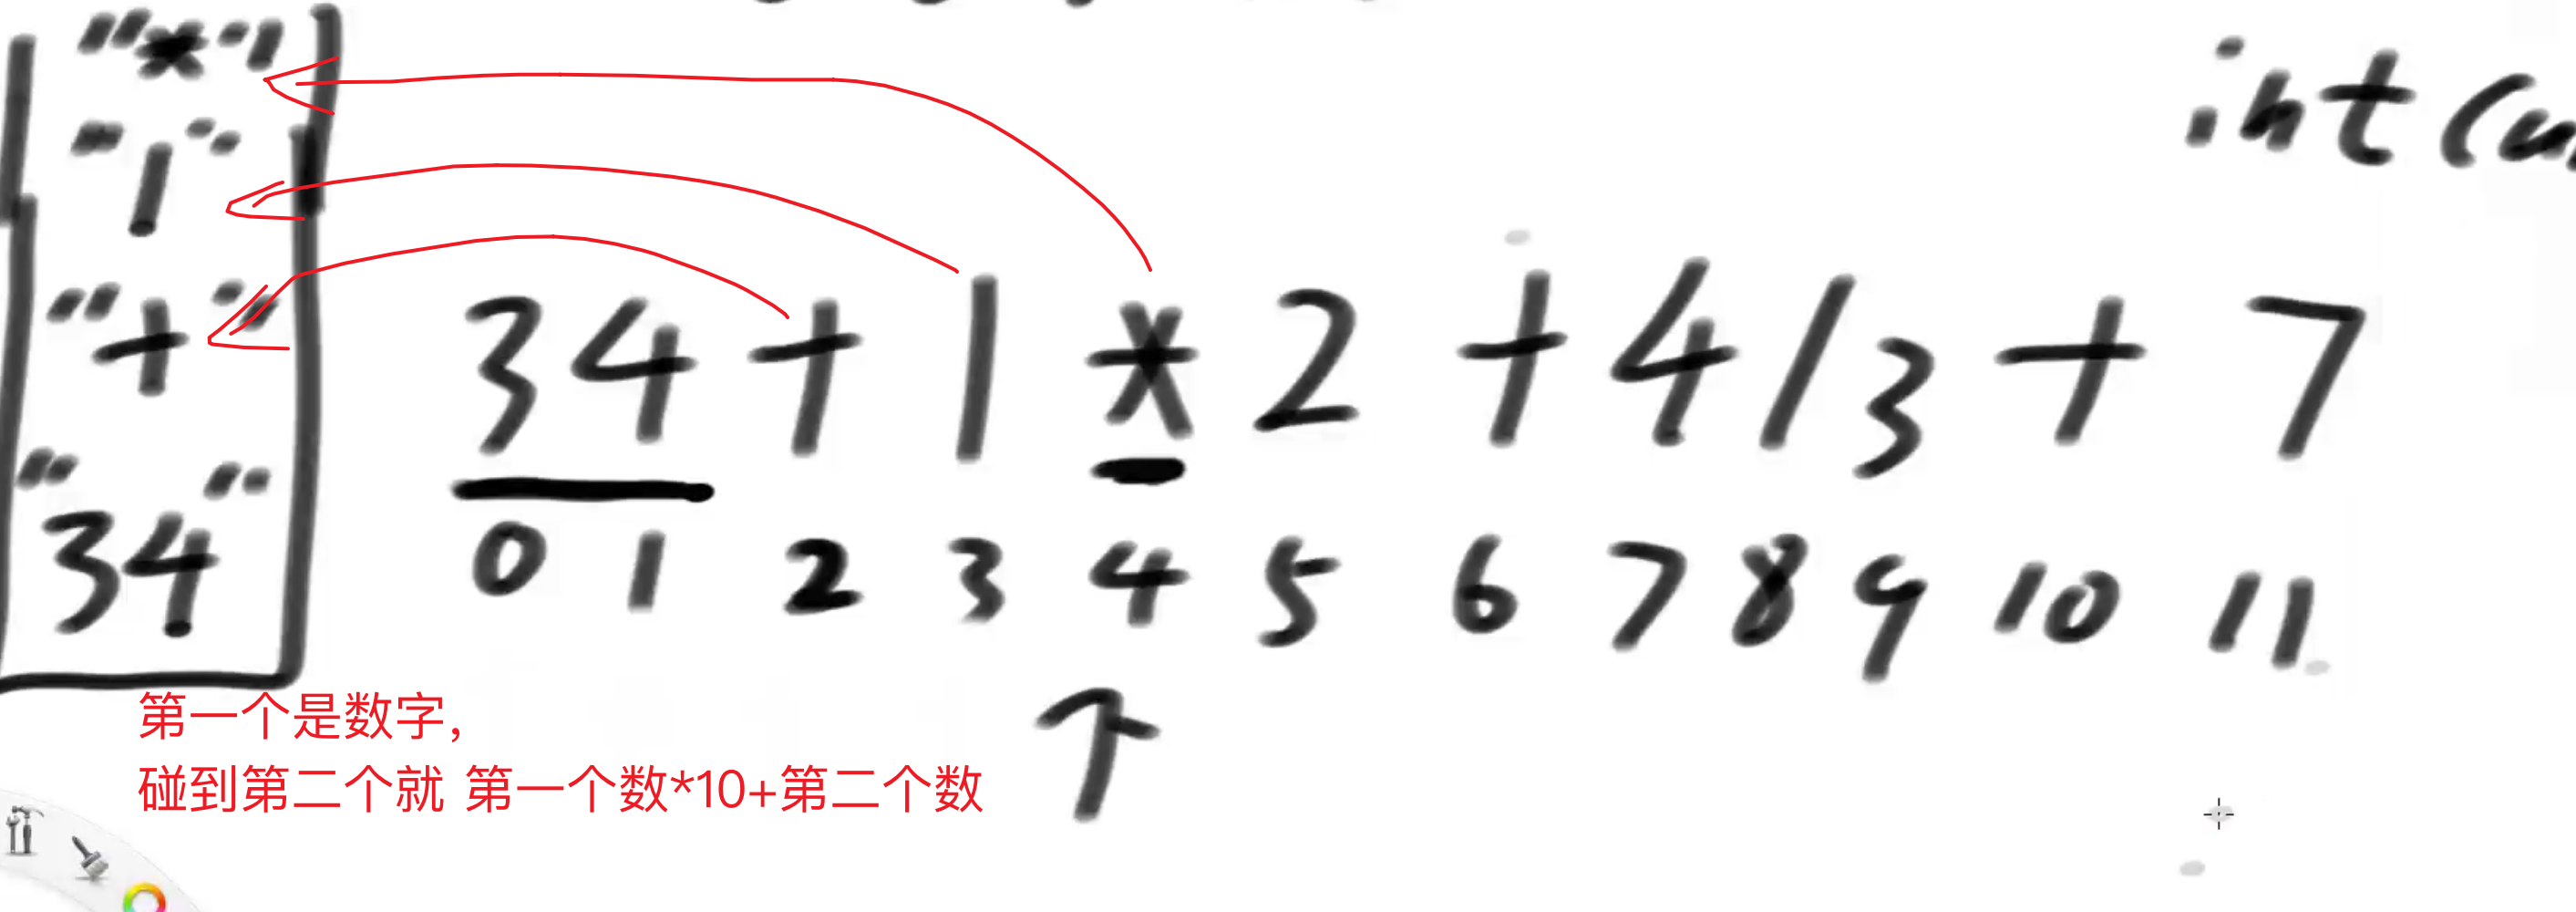 "*"
"1"
"+"
"34"
int(
34+1*2+4/3+7
0 1 2 3 4 5 6 7 8 9 10 11
第一个是数字，
碰到第二个就 第一个数*10+第二个数